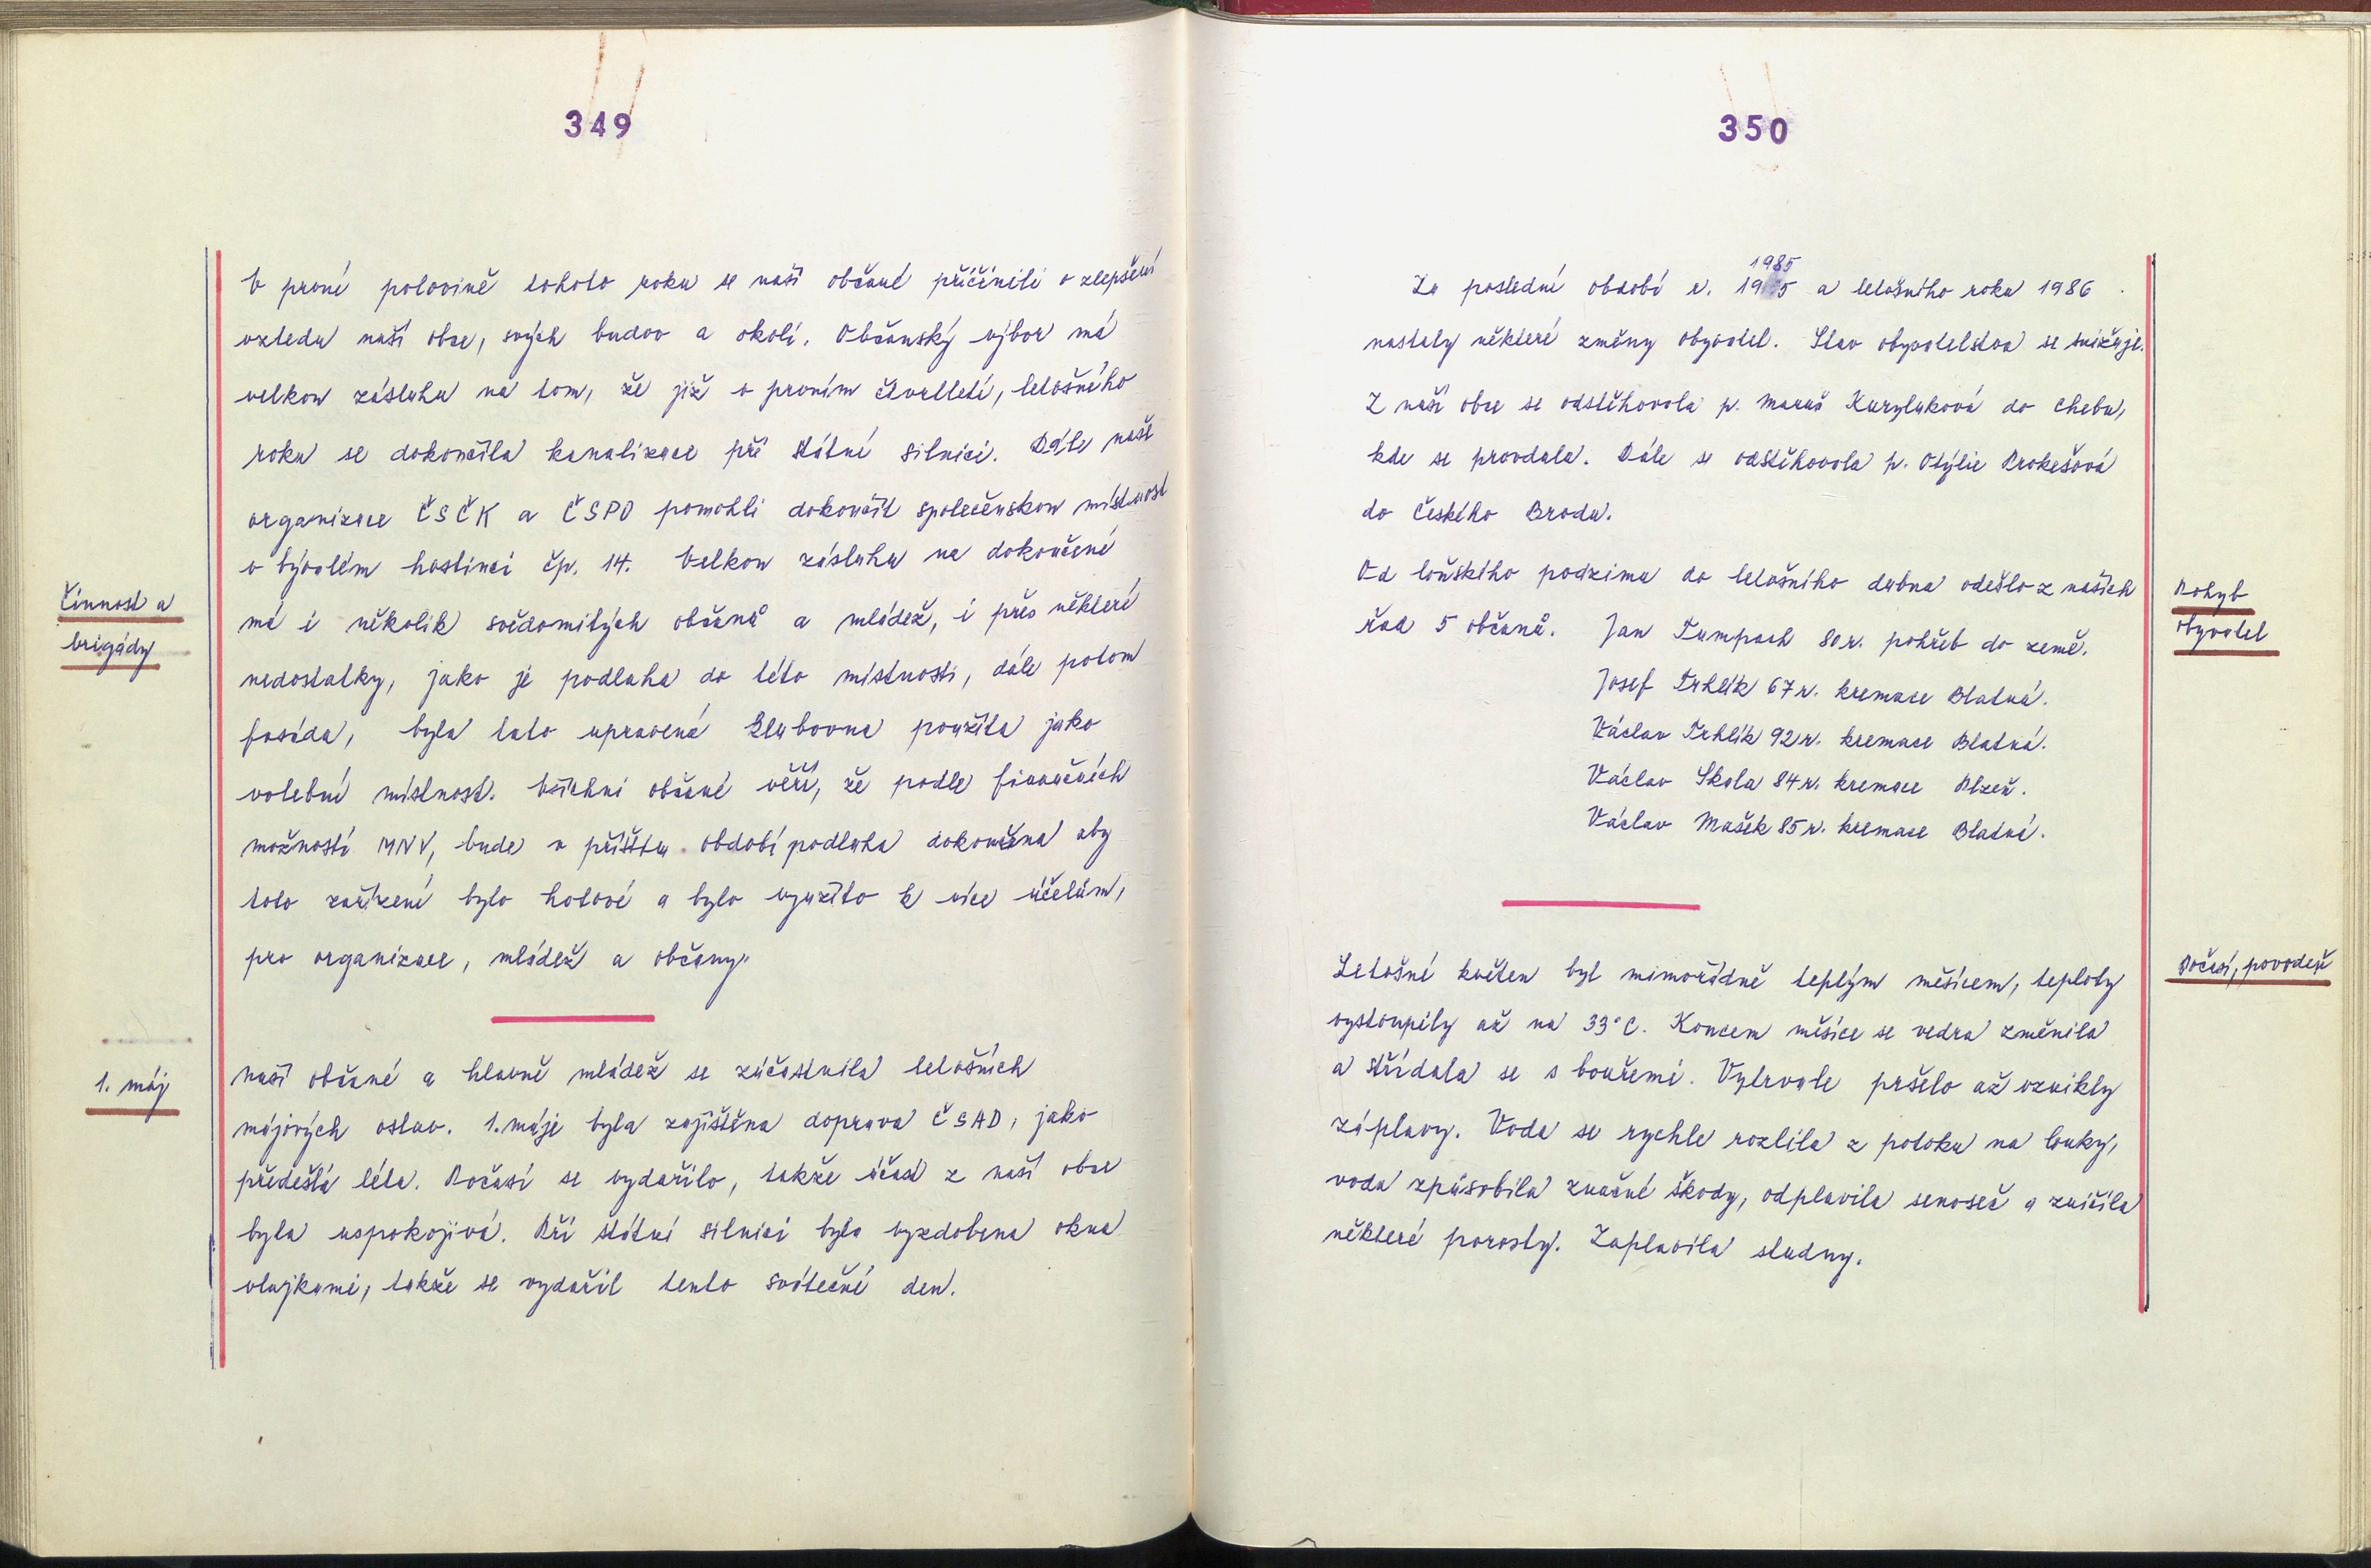 349
V první polovině tohoto roku se naši občané přičinili o zlepšení
vzhledu naší obce, svých budov a okolí. Občanský výbor má
velkou zásluhu na tom, že již v prvním čtvrtletí, letošního
roku se dokončila kanalizace při státní silnici. Dále naše
organizace ČSČK a ČSPO pomohli dokončit společenskou místnost
v bývalém hostinci čp. 14. Velkou zásluhu na dokončení
má i několik svědomitých občanů a mládež, i přes některé
nedostatky, jako je podlaha do této místnosti, dále potom
fasáda, byla tato upravená klubovna použita jako
volební místnost. Všichni občané věří, že podle finančních
možností MNV, bude v příštu období podlaha dokončena aby
toto zařízení bylo hotové a bylo využito k více účelům,
pro organizace, mládež a občany.
Činnost a
brigády
Naši občané a hlavně mládež se zúčastnila letošních
májových oslav. 1. máje byla zajištěna doprava ČSAD, jako
předešlá léta. Počasí se vydařilo, takže účast z naší obce
byla uspokojivá. Při státní silnici byla vyzdobena okna
vlajkami, takže se vydařil tento sváteční den.
1. máj
350
1985
Za poslední období r. 1985 a letošního roku 1986
nastaly některé změny obyvatel. Stav obyvatelstva se snižuje.
Z naší obce se odstěhovala p. Maruš Kuryluková do Chebu,
kde se provdala. Dále se odstěhovala p. Otýlie Prokešová
do Českého Brodu.
Od loňského podzimu do letošního dubna odešlo z našich
řad 5 občanů. Jan Tumpach 80 r. pohřeb do země.
Josef Trhlík 67 r. kremace Blatná.
Václav Trhlík 92 r. kremace Blatná.
Václav Skala 84 r. kremace Plzeň.
Václav Mašek 85 r. kremace Blatná.
Pohyb
obyvatel
Letošní květen byl mimořádně teplým měsícem, teploty
vystoupily až na 33°C. Koncem měsíce se vedra změnila
a střídala se s bouřemi. Vytrvale pršelo až vznikly
záplavy. Voda se rychle rozlila z potoku na louky,
voda způsobila značné škody, odplavila senoseč a zničila
některé porosty. Zaplavila studny.
Počasí, povodeň